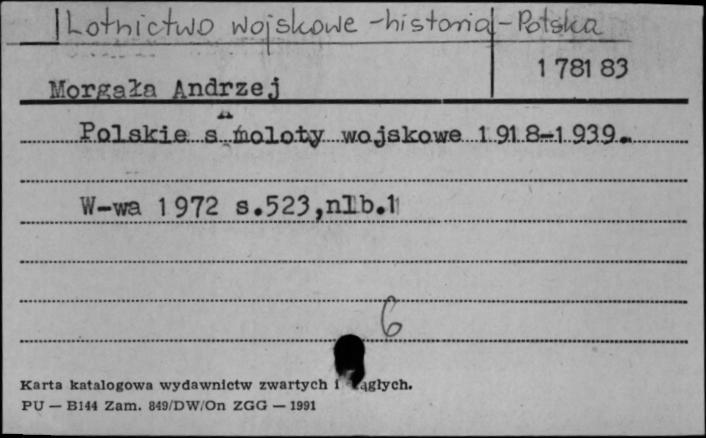 Lotnictwo wojskowe - historia - Polska
178183
Morgała Andrzej
Polskie samoloty wojskowe 1918-1939.
W-wa 1972 s.523,nlb.1
6
Karta katalogowa wydawnictw zwartych i ciągłych.
PU — B144 Zam. 849/DW/On ZGG — 1991